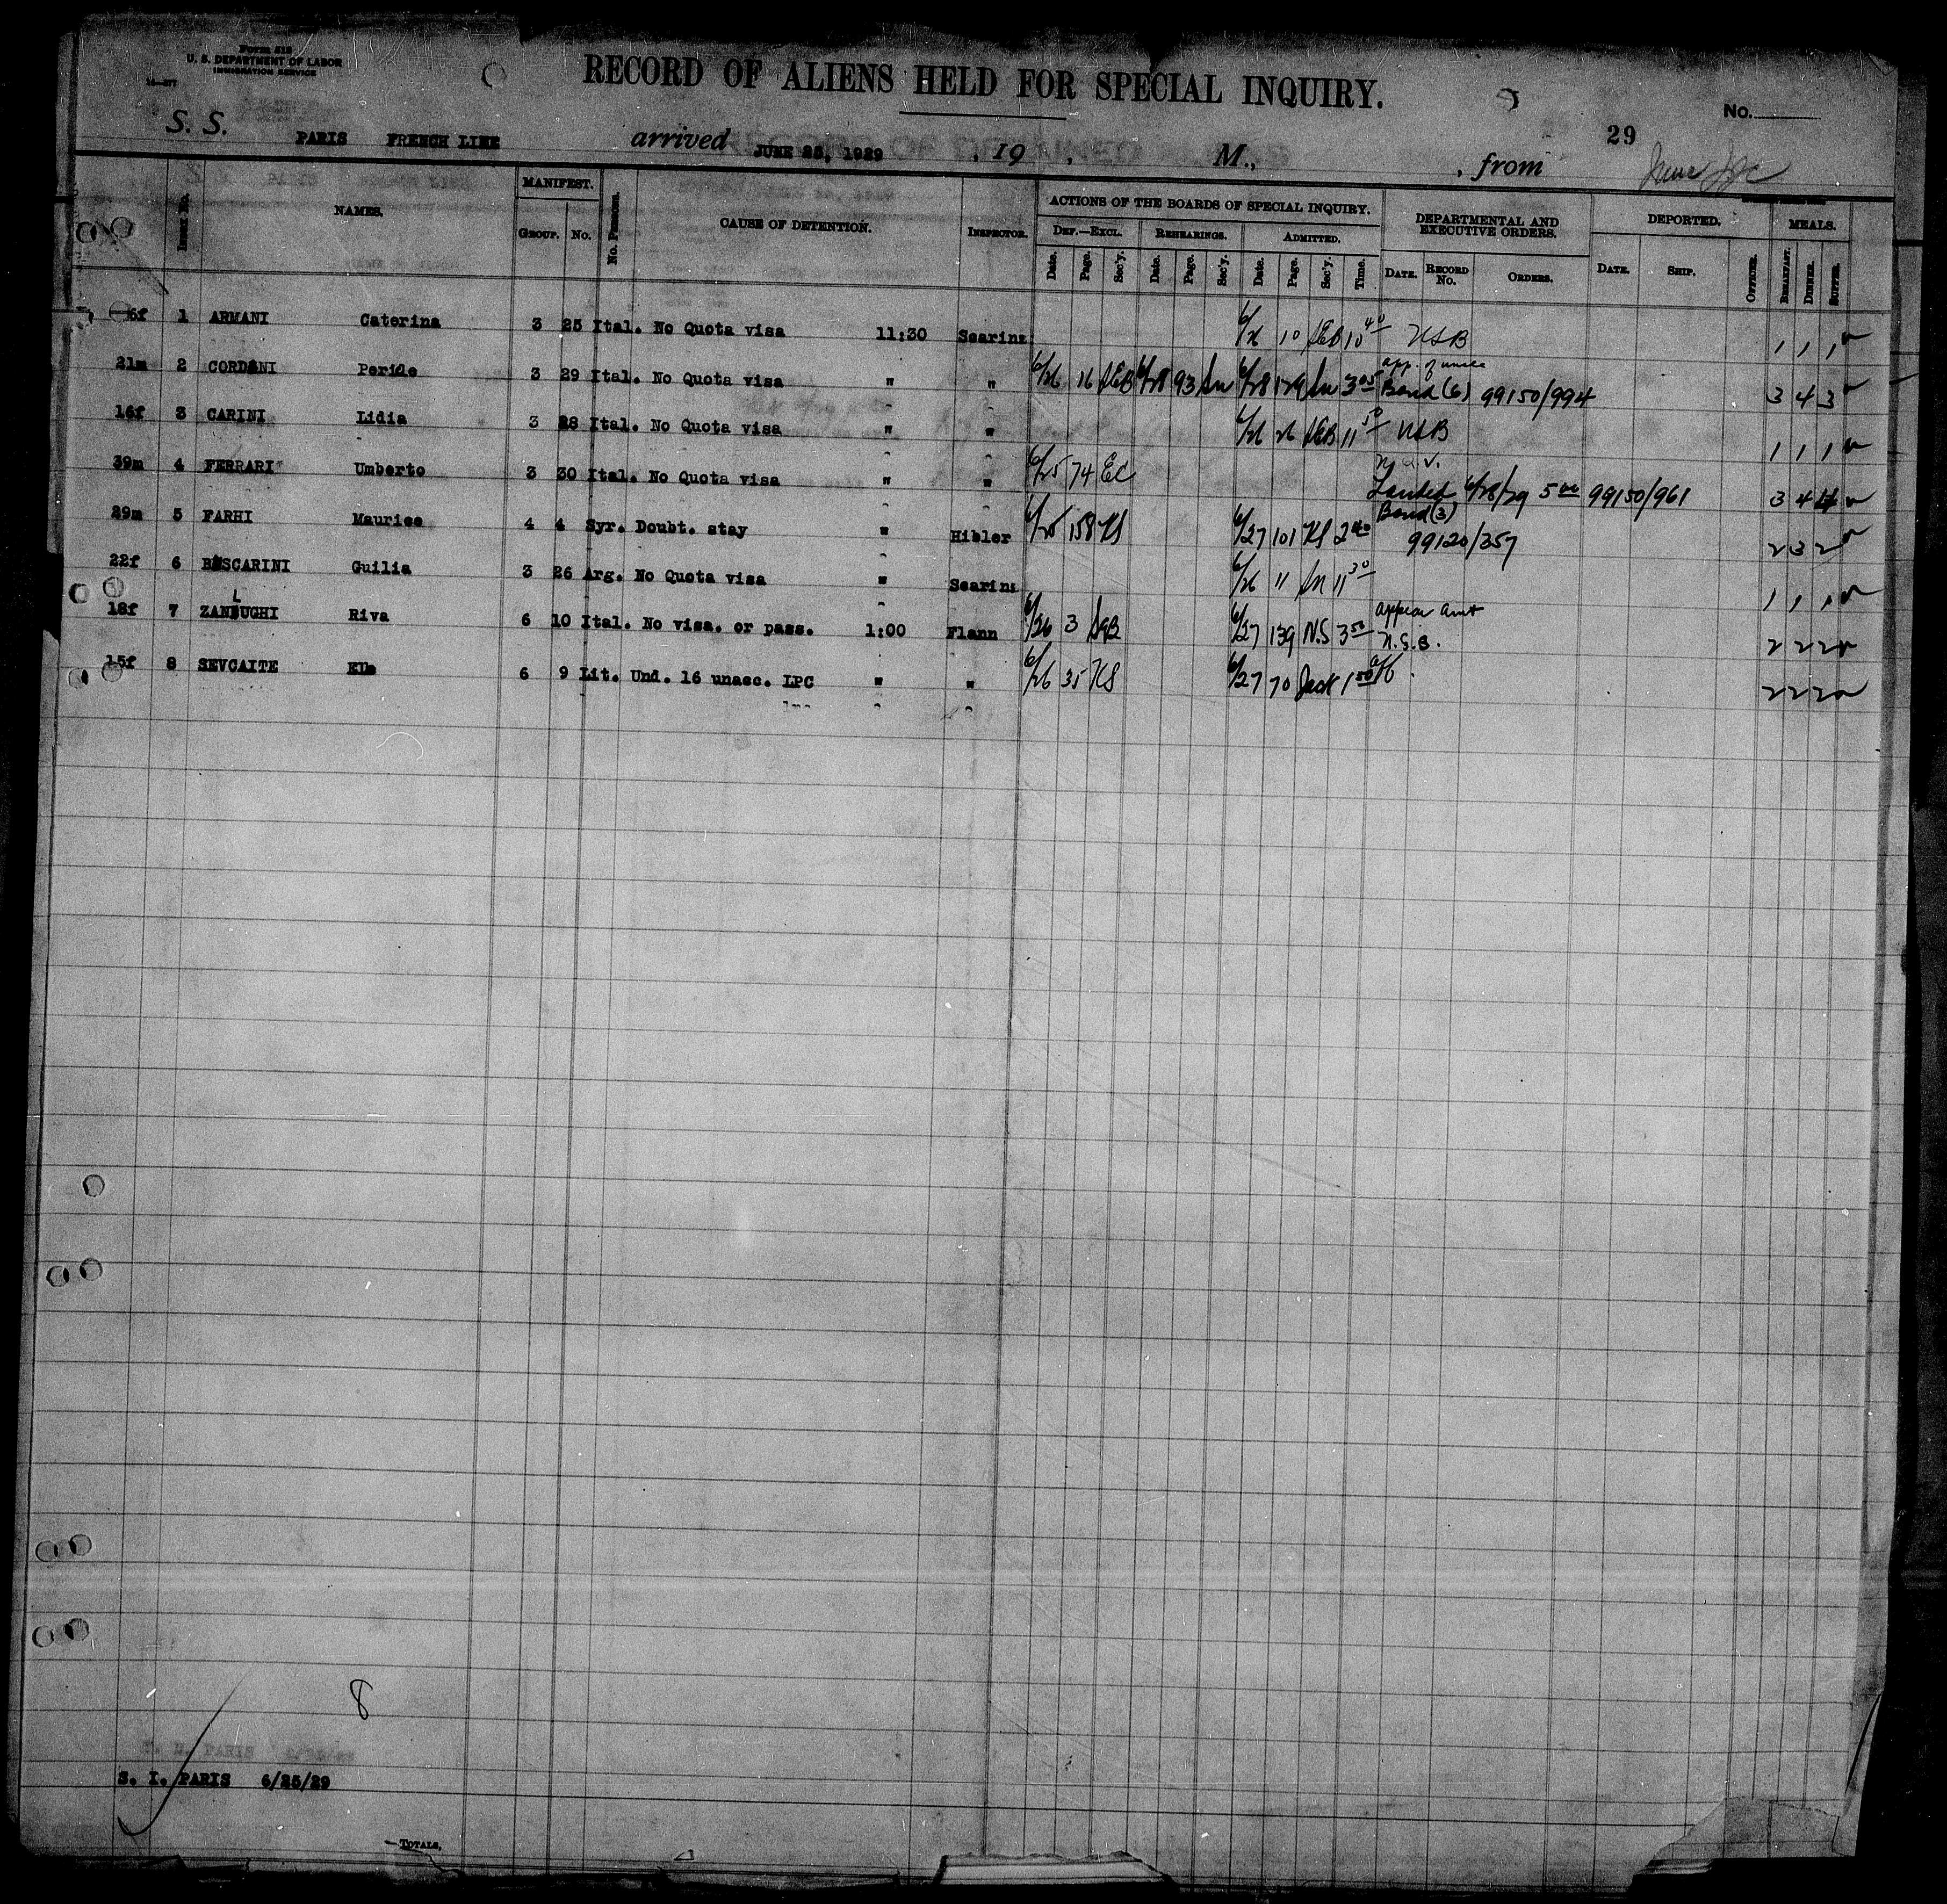 Form 518
U. S. DEPARTMENT OF LABOR
IMMIGRATION SERVICE
RECORD OF ALIENS HELD FOR SPECIAL INQUIRY.
No.
29
S. S. PARIS FRENCH LINE arrived JUNE 25, 1929 , 19 , M., , from
Index No. NAMES. MANIFEST. Group. No. No. Persons. CAUSE OF DETENTION. Inspector. ACTIONS OF THE BOARDS OF SPECIAL INQUIRY. Def.—Excl. Date. Page. Sec'y. Rehearings. Date. Page. Sec'y. Admitted. Date. Page. Sec'y. Time. DEPARTMENTAL AND EXECUTIVE ORDERS. Date. Record No. Orders. DEPORTED. Date. Ship. Officer. MEALS. Breakfast. Dinner. Supper.
1 ARMANI Caterina 3 25 Ital. No Quota visa 11:30 Searing 6/26 10 SEB 10 40 NSB 1 1 1
21m 2 CORDANI Peride 3 29 Ital. No Quota visa " " 6/26 16 SEB 6/28 93 Sn 6/28 129 Sn 3 05 Bond (6) 99150/994 3 4 3
16f 3 CARINI Lidia 3 28 Ital. No Quota visa " " 6/26 26 SEB 11 50 NSB 1 1 1
39m 4 FERRARI Umberto 3 30 Ital. No Quota visa " " 6/25 74 EC Landed 6/28/29 5 00 99150/961 3 4 4
29m 5 FARHI Maurice 4 4 Syr. Doubt. stay " Hibler 6/25 158 KS 6/27 101 KS 2 40 Bond (3) 99120/357 2 3 2
22f 6 BUSCARINI Guilia 3 26 Arg. No Quota visa " Searing 6/26 11 Sn 11 30 1 1 1
18f 7 ZANLUGHI Riva 6 10 Ital. No visa. or pass. 1:00 Flann 6/26 3 SEB 6/27 139 N.S 3 50 appear aunt N.S.B. 2 2 2
15f 8 SEVCAITE Ele 6 9 Lit. Und. 16 unacc. LPC " " 6/26 35 KS 6/27 70 Jack 1 50 2 2 2
8
S. I. PARIS 6/25/29
Totals,